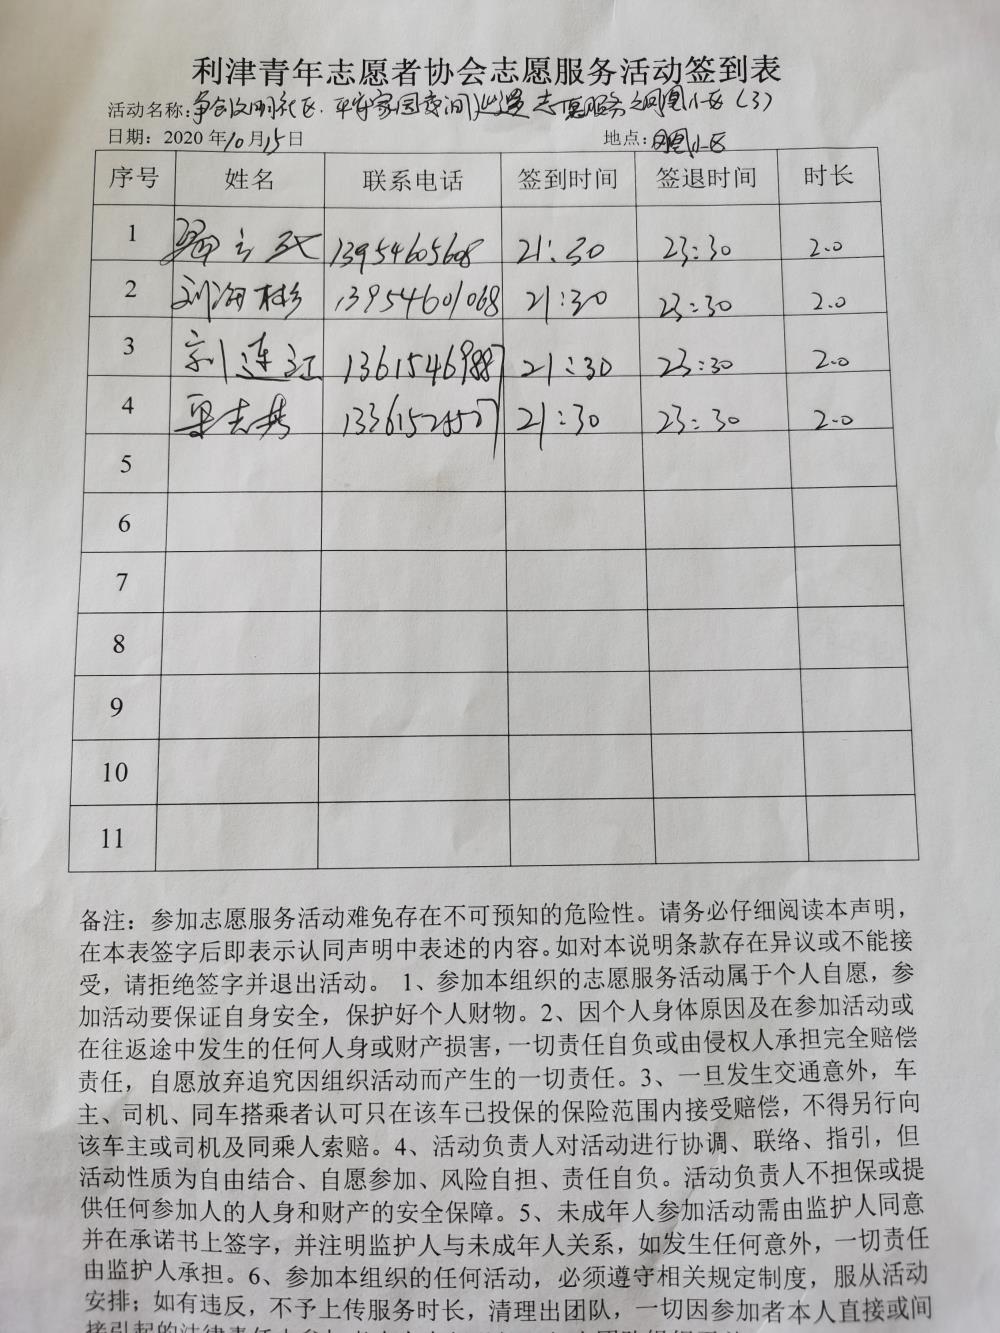 利津青年志愿者协会志愿服务活动签到表
活动名称:争创文明社区·平安家园夜间巡逻志愿服务之凤凰小区(3)
日期：2020年10月15日 地点:凤凰小区
序号 姓名 联系电话 签到时间 签退时间 时长
1 13954605608 21:30 23:30 2.0
2 刘海彬 13954601068 21:30 23:30 2.0
3 连江 13615469887 21:30 23:30 2.0
4 21:30 23:30 2.0
5
6
7
8
9
10
11
备注：参加志愿服务活动难免存在不可预知的危险性。请务必仔细阅读本声明，
在本表签字后即表示认同声明中表述的内容。如对本说明条款存在异议或不能接
受，请拒绝签字并退出活动。 1、参加本组织的志愿服务活动属于个人自愿，参
加活动要保证自身安全，保护好个人财物。2、因个人身体原因及在参加活动或
在往返途中发生的任何人身或财产损害，一切责任自负或由侵权人承担完全赔偿
责任，自愿放弃追究因组织活动而产生的一切责任。3、一旦发生交通意外，车
主、司机、同车搭乘者认可只在该车已投保的保险范围内接受赔偿，不得另行向
该车主或司机及同乘人索赔。4、活动负责人对活动进行协调、联络、指引，但
活动性质为自由结合、自愿参加、风险自担、责任自负。活动负责人不担保或提
供任何参加人的人身和财产的安全保障。5、未成年人参加活动需由监护人同意
并在承诺书上签字，并注明监护人与未成年人关系，如发生任何意外，一切责任
由监护人承担。6、参加本组织的任何活动，必须遵守相关规定制度，服从活动
安排；如有违反，不予上传服务时长，清理出团队，一切因参加者本人直接或间